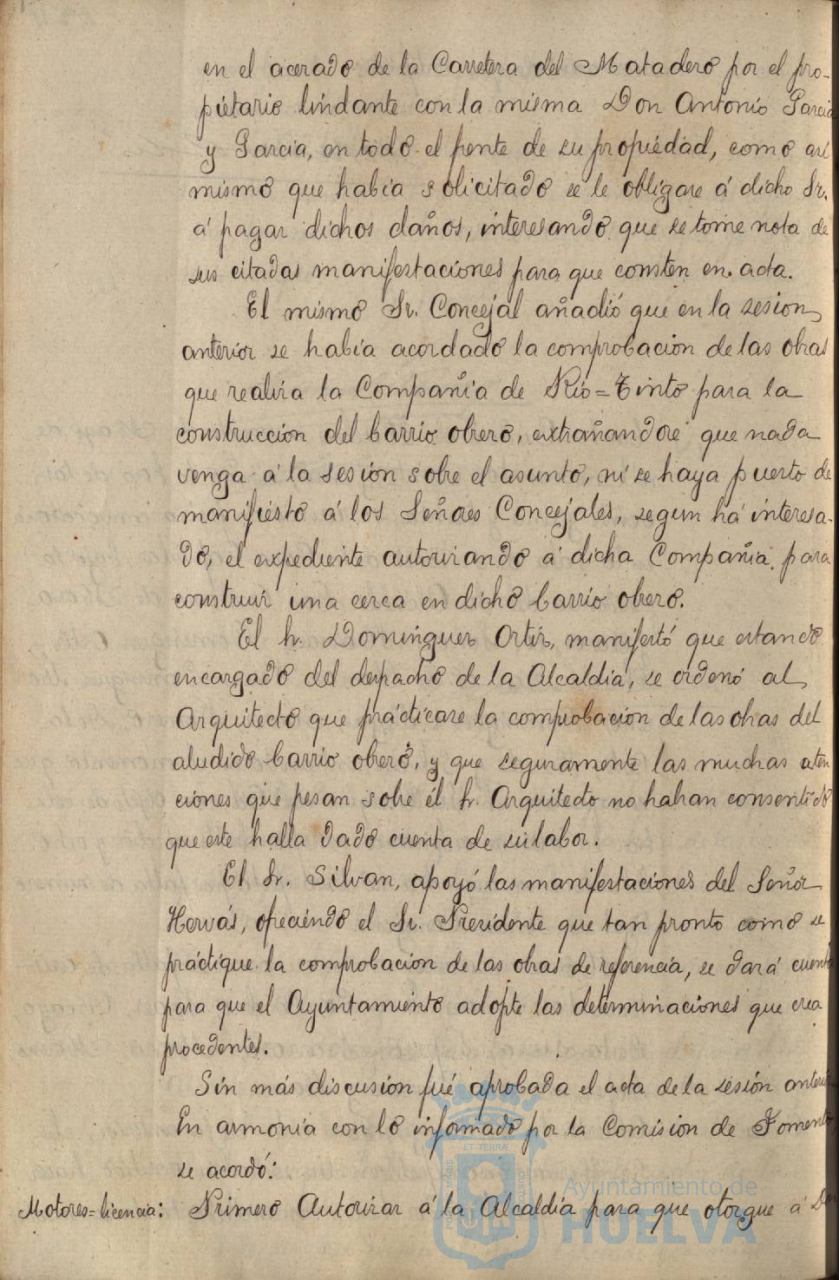 en el acerado de la Carretera del Matadero por el pro-
pietario lindante con la misma Don Antonio Garcia
y Garcia, en todo el frente de su propiedad, como asi
mismo que habia solicitado se le obligase á dicho Sr.
á pagar dichos daños, interesando que se tome nota de
sus citadas manifestaciones para que consten en acta.
El mismo Sr. Concejal añadió que en la sesion
anterior se habia acordado la comprobacion de las obras
que realiza la Compañia de Rio=Tinto para la
construccion del barrio obrero, extrañandose que nada
venga á la sesion sobre el asunto, ni se haya puesto de
manifiesto á los Señores Concejales, segun há interesa-
do, el expediente autorizando á dicha Compañia para
construir una cerca en dicho barrio obrero.
El Sr. Dominguez Ortiz, manifestó que estando
encargado del despacho de la Alcaldia, se ordenó al
Arquitecto que prácticase la comprobacion de las obras del
aludido barrio obrero, y que seguramente las muchas aten
ciones que pesan sobre él Sr. Arquitecto no habran consentido
que este halla dado cuenta de su labor.
El Sr. Silvan, apoyó las manifestaciones del Señor
Hervás, ofreciendo el Sr. Presidente que tan pronto como se
práctique la comprobacion de las obras de referencia, se dará cuenta
para que el Ayuntamiento adopte las determinaciones que crea
procedentes.
Sin más discusion fué aprobada el acta de la sesión anterior
En armonia con lo informado por la Comision de Fomento
se acordó:
Motores=licencia: Primero Autorizar á la Alcaldia para que otorgue á Don
Ayuntamiento de
HUELVA